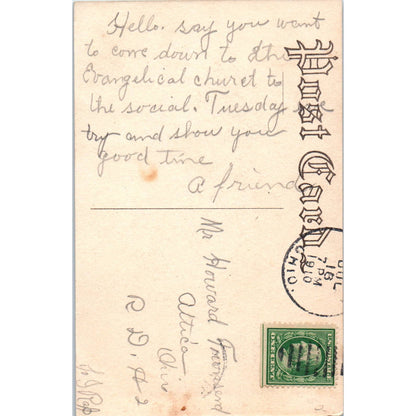 Hello. say you want
to come down to the
Evangelical churct to
the social. Tuesday
try and show you
good time
A friend
Post Card
JUL
18
7 PM
1910
OHIO.
Mr Howard Townsend
Attica
Ohio
R. D. # 2